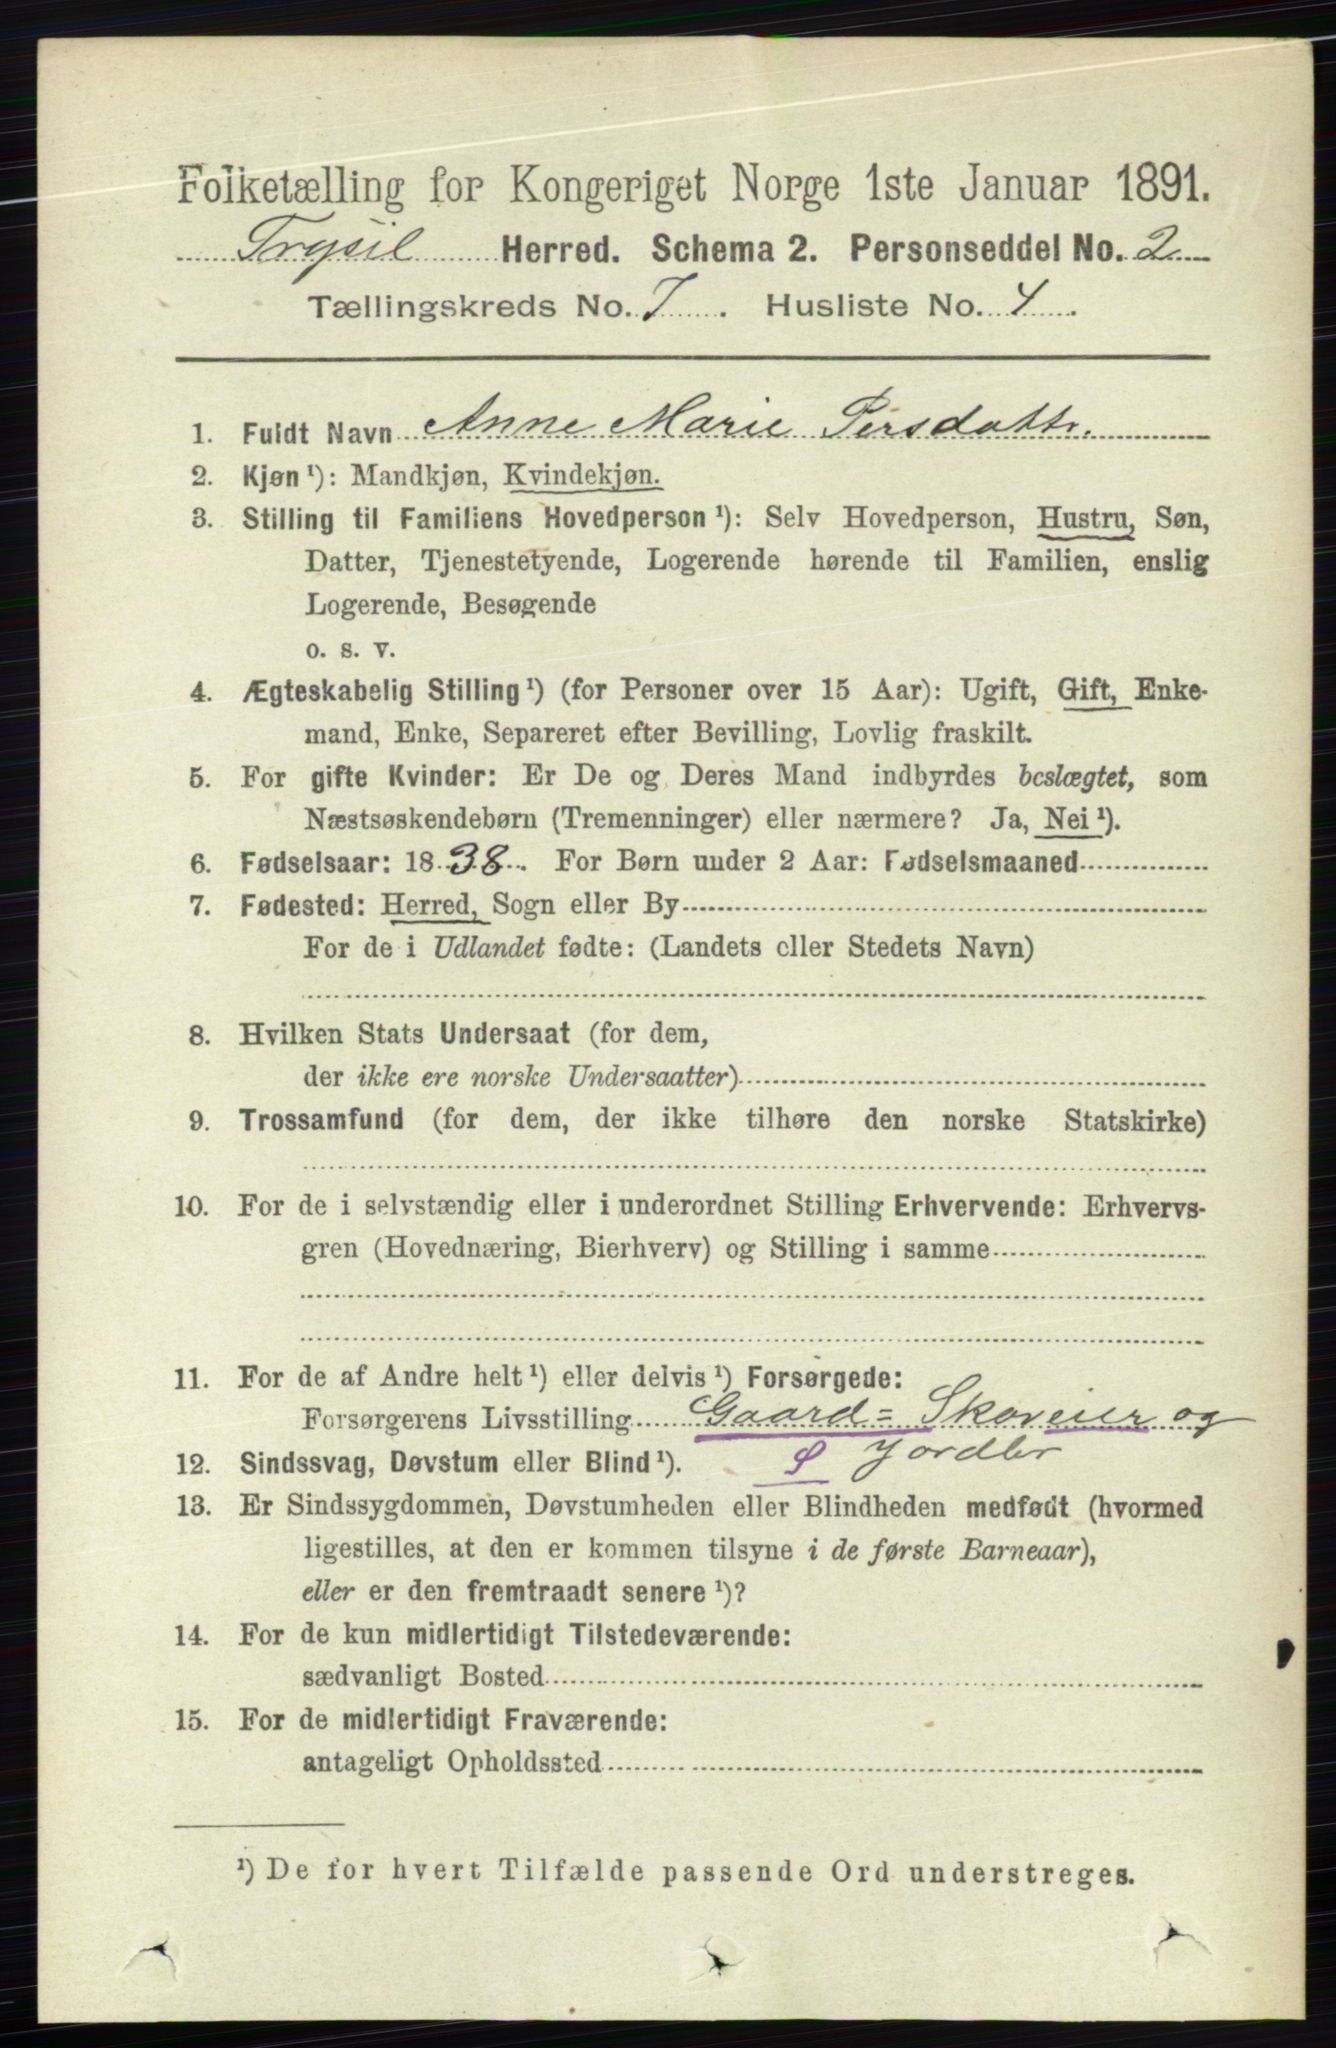 Folketælling for Kongeriget Norge 1ste Januar 1891.
Trysil Herred. Schema 2. Personseddel No. 2
Tællingskreds No. 7. Husliste No. 4.
1. Fuldt Navn Anne Marie Persdattr.
2. Kjøn ¹): Mandkjøn, Kvindekjøn.
3. Stilling til Familiens Hovedperson ¹): Selv Hovedperson, Hustru, Søn,
Datter, Tjenestetyende, Logerende hørende til Familien, enslig
Logerende, Besøgende
o. s. v.
4. Ægteskabelig Stilling ¹) (for Personer over 15 Aar): Ugift, Gift, Enke-
mand, Enke, Separeret efter Bevilling, Lovlig fraskilt.
5. For gifte Kvinder: Er De og Deres Mand indbyrdes beslægtet, som
Næstsøskendebørn (Tremenninger) eller nærmere? Ja, Nei ¹).
6. Fødselsaar: 1838. For Børn under 2 Aar: Fødselsmaaned
7. Fødested: Herred, Sogn eller By
For de i Udlandet fødte: (Landets eller Stedets Navn)
8. Hvilken Stats Undersaat (for dem,
der ikke ere norske Undersaatter)
9. Trossamfund (for dem, der ikke tilhøre den norske Statskirke)
10. For de i selvstændig eller i underordnet Stilling Erhvervende: Erhvervs-
gren (Hovednæring, Bierhverv) og Stilling i samme
11. For de af Andre helt ¹) eller delvis ¹) Forsørgede:
Forsørgerens Livsstilling Gaard= Skoveier og
12. Sindssvag, Døvstum eller Blind ¹). S Jordbr
13. Er Sindssygdommen, Døvstumheden eller Blindheden medfødt (hvormed
ligestilles, at den er kommen tilsyne i de første Barneaar),
eller er den fremtraadt senere ¹)?
14. For de kun midlertidigt Tilstedeværende:
sædvanligt Bosted
15. For de midlertidigt Fraværende:
antageligt Opholdssted
¹) De for hvert Tilfælde passende Ord understreges.